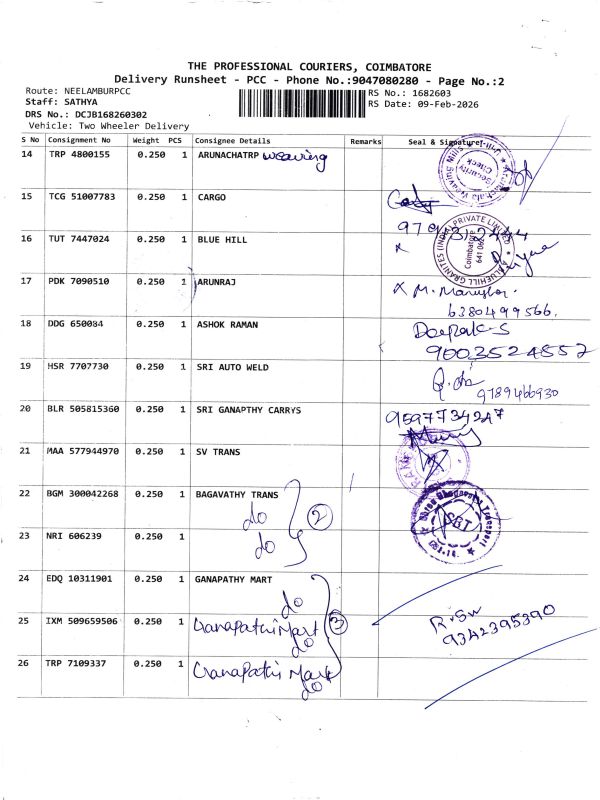 THE PROFESSIONAL COURIERS, COIMBATORE
Delivery Runsheet - PCC - Phone No.:9047080280 - Page No.:2
Route: NEELAMBURPCC
RS No.: 1682603
Staff: SATHYA
RS Date: 09-Feb-2026
DRS No.: DCJB168260302
Vehicle: Two Wheeler Delivery
S No Consignment No Weight PCS Consignee Details Remarks Seal & Signature
14 TRP 4800155 0.250 1 ARUNACHATRP weaving
Security Check
15 TCG 51007783 0.250 1 CARGO
16 TUT 7447024 0.250 1 BLUE HILL
BLUEHILL GRANITES (INDIA) PRIVATE LIMITED
Coimbatore
641 062
17 PDK 7090510 0.250 1 ARUNRAJ
6380499566.
18 DDG 650084 0.250 1 ASHOK RAMAN Deepak-S
9003524557
19 HSR 7707730 0.250 1 SRI AUTO WELD
9789466930
20 BLR 505815360 0.250 1 SRI GANAPTHY CARRYS 9597734247
21 MAA 577944970 0.250 1 SV TRANS
22 BGM 300042268 0.250 1 BAGAVATHY TRANS
do 2
SBT
23 NRI 606239 0.250 1 do
24 EDQ 10311901 0.250 1 GANAPATHY MART
do
25 IXM 509659506 0.250 1 Ganapathi Mart 3
do
9342395390
26 TRP 7109337 0.250 1 Ganapathi Mart
do